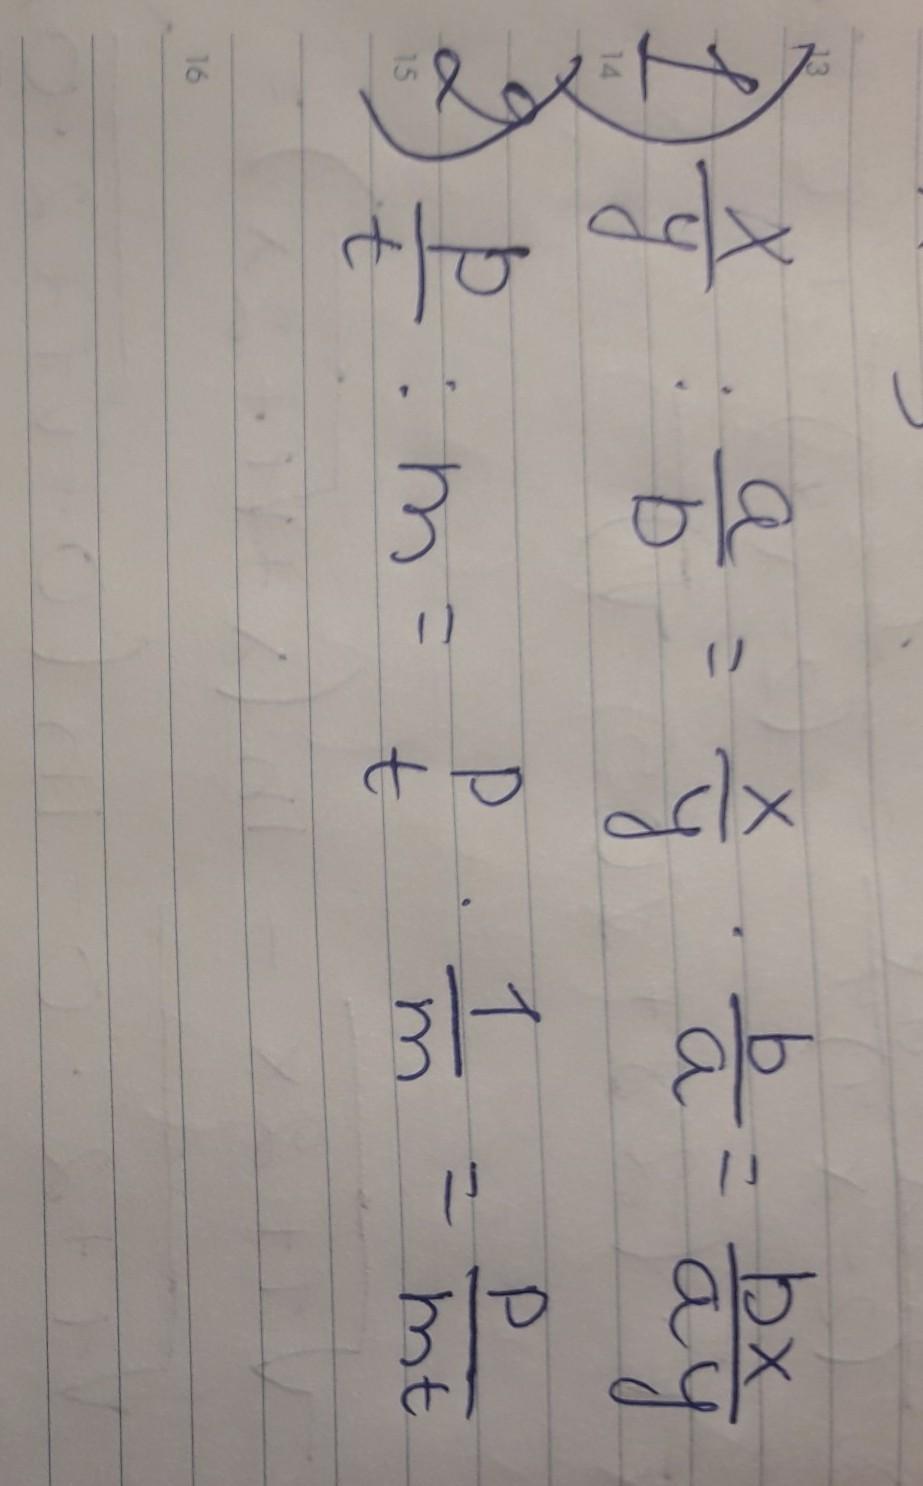 13
1) x/y : a/b = x/y · b/a = bx/ay
14
2) p/t : m = p t · 1/m = p/mt
15
16